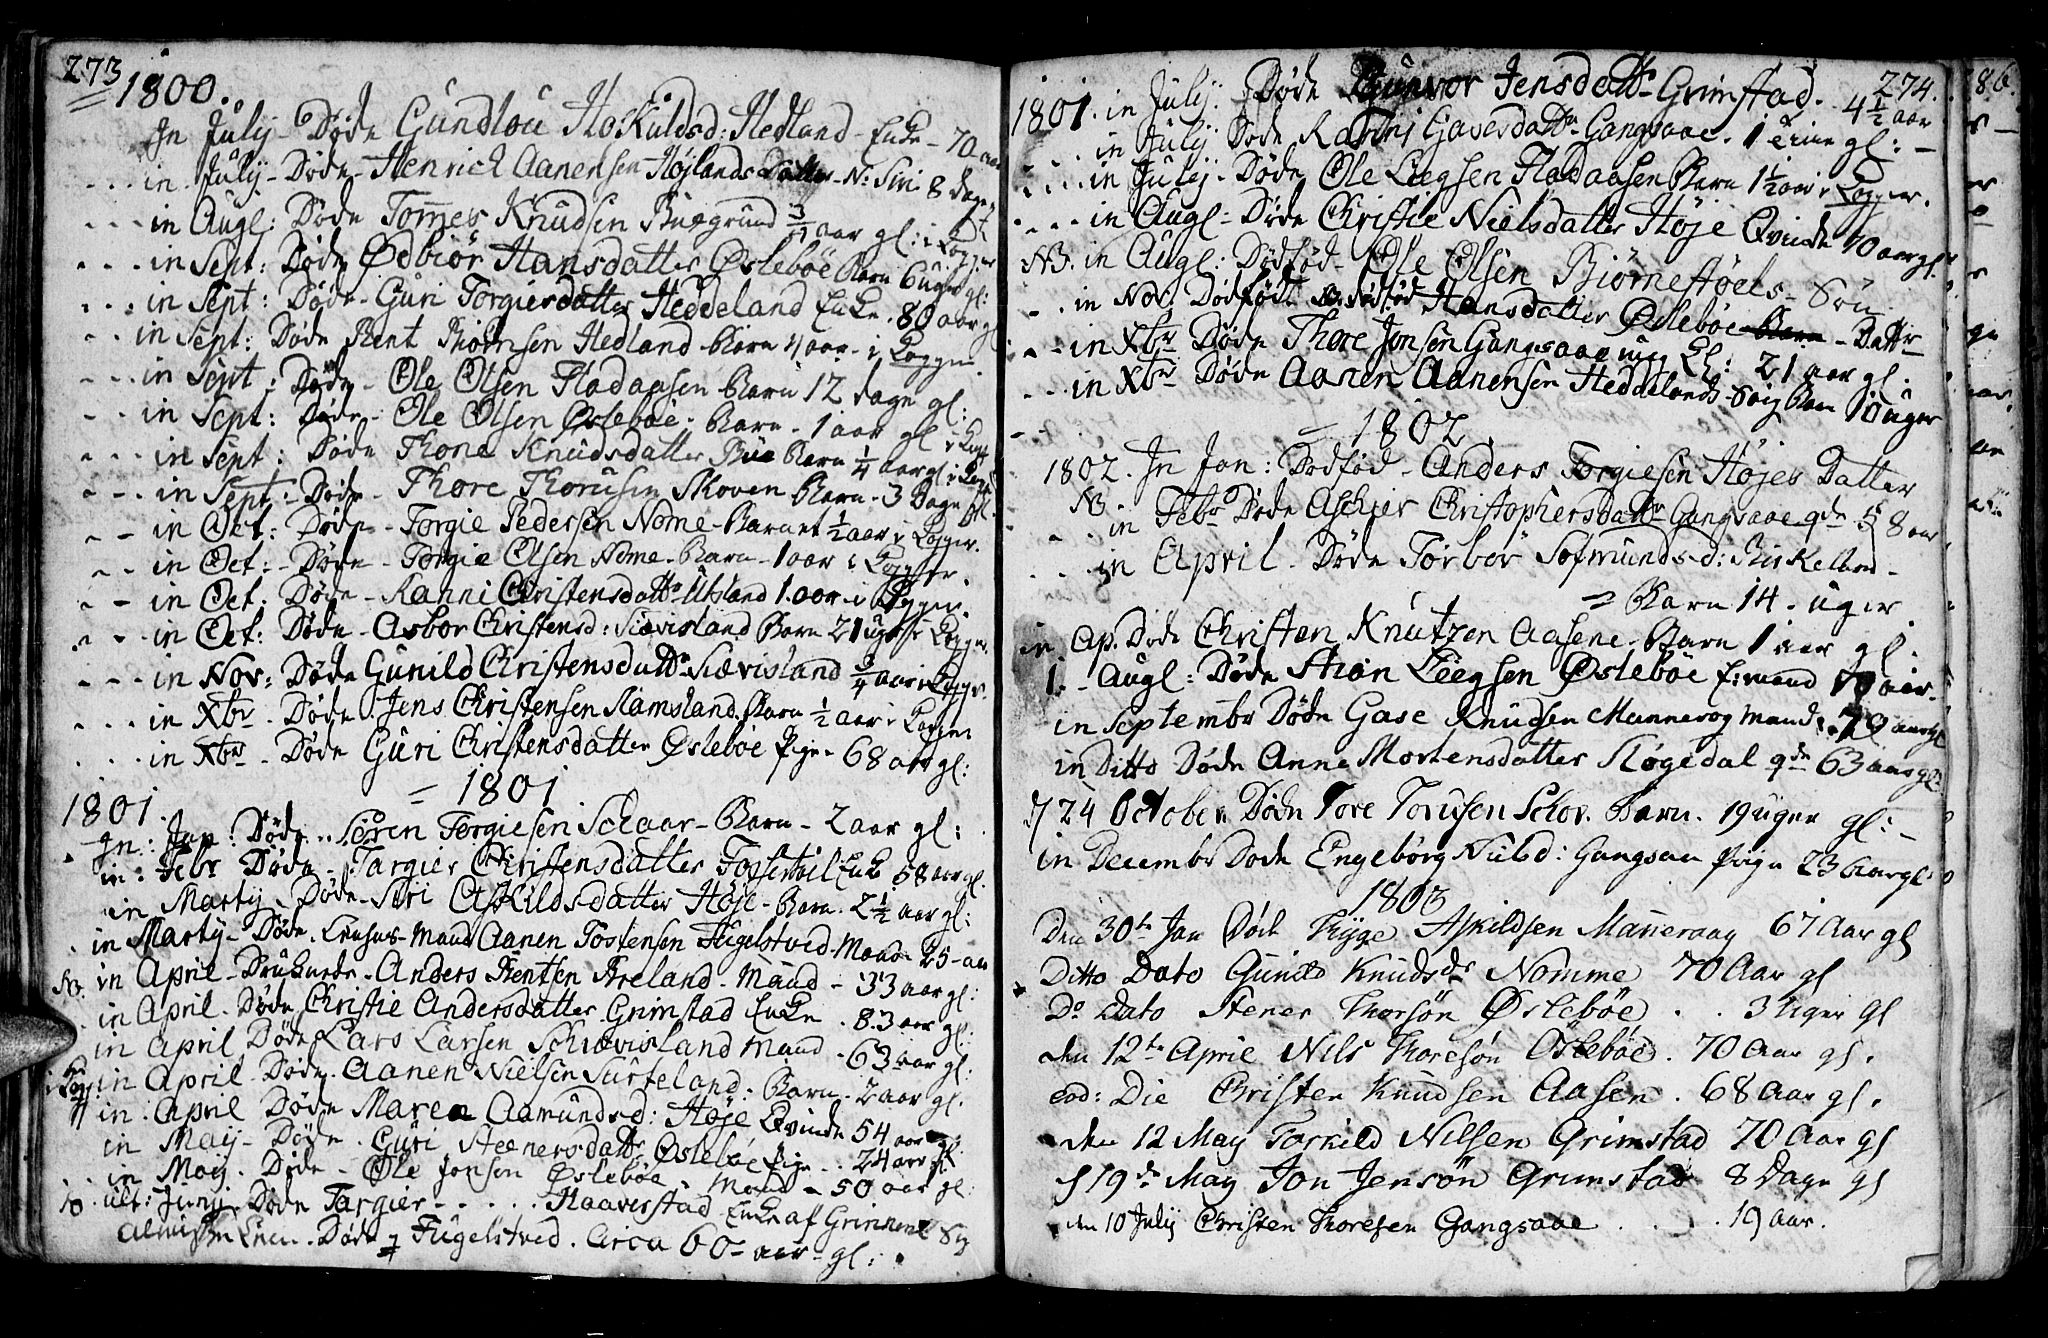 273
1800.
Jn July - Døde Gundlou Hoskuldsd: Hedland - Enke - 70 aar
in July - Døde - Henrich Aanensen Højlands Datter - N: Siri 8 dage
in Augl: Døde Tom̅es Knudsen Buegrund 3/4 aar gl: i Kopper
in Sept: Døde Ødbiör Hansdatter Øsleböe Barn 6 uger gl:
in Sept: Døde - Guri Torgiersdatter Heddeland Enke. 80 aar gl
in Sept: Døde Bent Thomsen Hedland Barn aar - i Kopper
in Sept: Døde - Ole Olsen Fladaasen Barn 12 dage gl:
in Sept: Døde - Ole Olsen Øslebøe - Barn - 1 aar gl i Kop
in Sept: Døde Thone Knudsdatter Bue Barn 1/4 aar gl i Kop
in Sept: Døde - Thore Thorusen Skoven Barn - 3 Dage gl.
in Oct: Døde - Torgie Pedersen Nome - Barnet 1/2 aar i Kopper.
in Oct: - Døde - Torgie Olsen Nome - Barn - 1 aar i Kopper.
in Oct: Døde - Ranni Christensdattr Utsland 1. aar i Kopper.
in Oct: Døde - Asbor Christensd: Siævisland Barn 21 uger i Kopper
in Nov: Døde Gunild Christensdattr Siævisland 3/4 aar i Kopper
in Xbr - Døde. Jens Christensen Ramsland. Barn 1/2 aar i Kopper
in Xbr - Døde Guri Christensdatter Øslebøe Pige - 68 aar gl:
= 1801
1801.
Jn: Jan: Døde .. Søren Torgiesen Schaar - Barn - 2 aar gl:
in: Febr Døde - Targier Christensdatter Fosestøil Enke 58 aar gl.
in Martij - Døde - Siri Askildsdatter Høje - Barn - 2 1/2 aar gl:
in Martij - Døde. Aanen Tostensen Fugelstved - Mand 25 - aar
NB. in April - Druknede - Anders Bentsen Hreland - Mand - 33 aar gl:
in April - Døde Christie Andersdatter Grimstad Enke - 83 aar gl:
in April Døde Lars Larsen Schiævisland Mand - 63 aar gl:
in April - Døde. Aanen Nielsen Surteland: Barn - 2 aar gl.
in: April Døde Maren Aamundsd: Høje Qvinde 54 aar gl:
in Maij - Døde. Guri Steenersdattr Øslebøe Pige .. 24 aar gl
in Maij. Døde - Ole Jonsen Øslebøe - Mand - 50 aar gl:
ult: Junij - Døde Targier - . . . . Haaverstad Enke af Grinnem Sg
Døde i Fugelstved. Circa 60 - aar - gl:
274.
1801. in July: Døde Gunvor Jensdattr Grimstad. 4 1/2 aar
in July Døde Ranni Gavesdattr Gangsaae. 1 time gl: -
in July - Døde Ole Leegsen Fladaasen Barn 1 1/2 aar i Kopper.
in Augl - Døde Christie Nielsdatter Høje Qvinde 70 aar gl.
NB. in Augl: Dødfød - Ole Olsen Biørnestöels - Sön
in Nov. Dødfødt Hansdatter Øslebøe Barn - Dattr
in Xbr Døde Thore Jonsen Gangsaae ung K: 21 aar gl.
in Xbr Døde Aanen Aanensen Heddelands - Barn 10 uger
- 1802.
1802. Jn Jan: Dødfød - Anders Torgiesen Høies Datter
NB
in Febr Døde Aschier Christophersdattr Gangsaae qde 58 aar
in April - Døde Torbor Sofmundsd: Birkeland -
= Barn 14. uger
in Ap. Døde Christen Knutzen Aasene - Barn 1 aar gl:
i. - Augl: Døde Stian Leegsen Øslebøe E:mand 70 aar.
in Septembr Døde Gase Knudsen Mannerog mand. 79 aar gl
in Ditto Døde Anne Mortensdatter Røgedal qde 63 aar gl.
d 24 October Døde Tore Torusen Schov. Barn. 19 uger gl: -
in Decembr Døde Engebørg Nielsd: Gangsaa Pige 23 aar gl:
1803
Den 30te Jan Død Thyge Askildsen Man̅eraag 67 Aar gl
Ditto Dato Gund Knudsdr Nomme 70 Aar gl
Do Dato Stener Thorsön Øslebøe . . 3 Uger gl
den 12te April Nils Thoresön Öslebøe. 70 Aar gl.
eod: Die Christen Knudsen Aasen. 68 Aar gl.
den 12 May Torkild Nilsen Grimstad 70 Aar gl
d 19de May Jon Jensön Grimstad 8 Dage gl
den 10 July Christen Thoresen Gangsaae . . . 19 aar.
286.